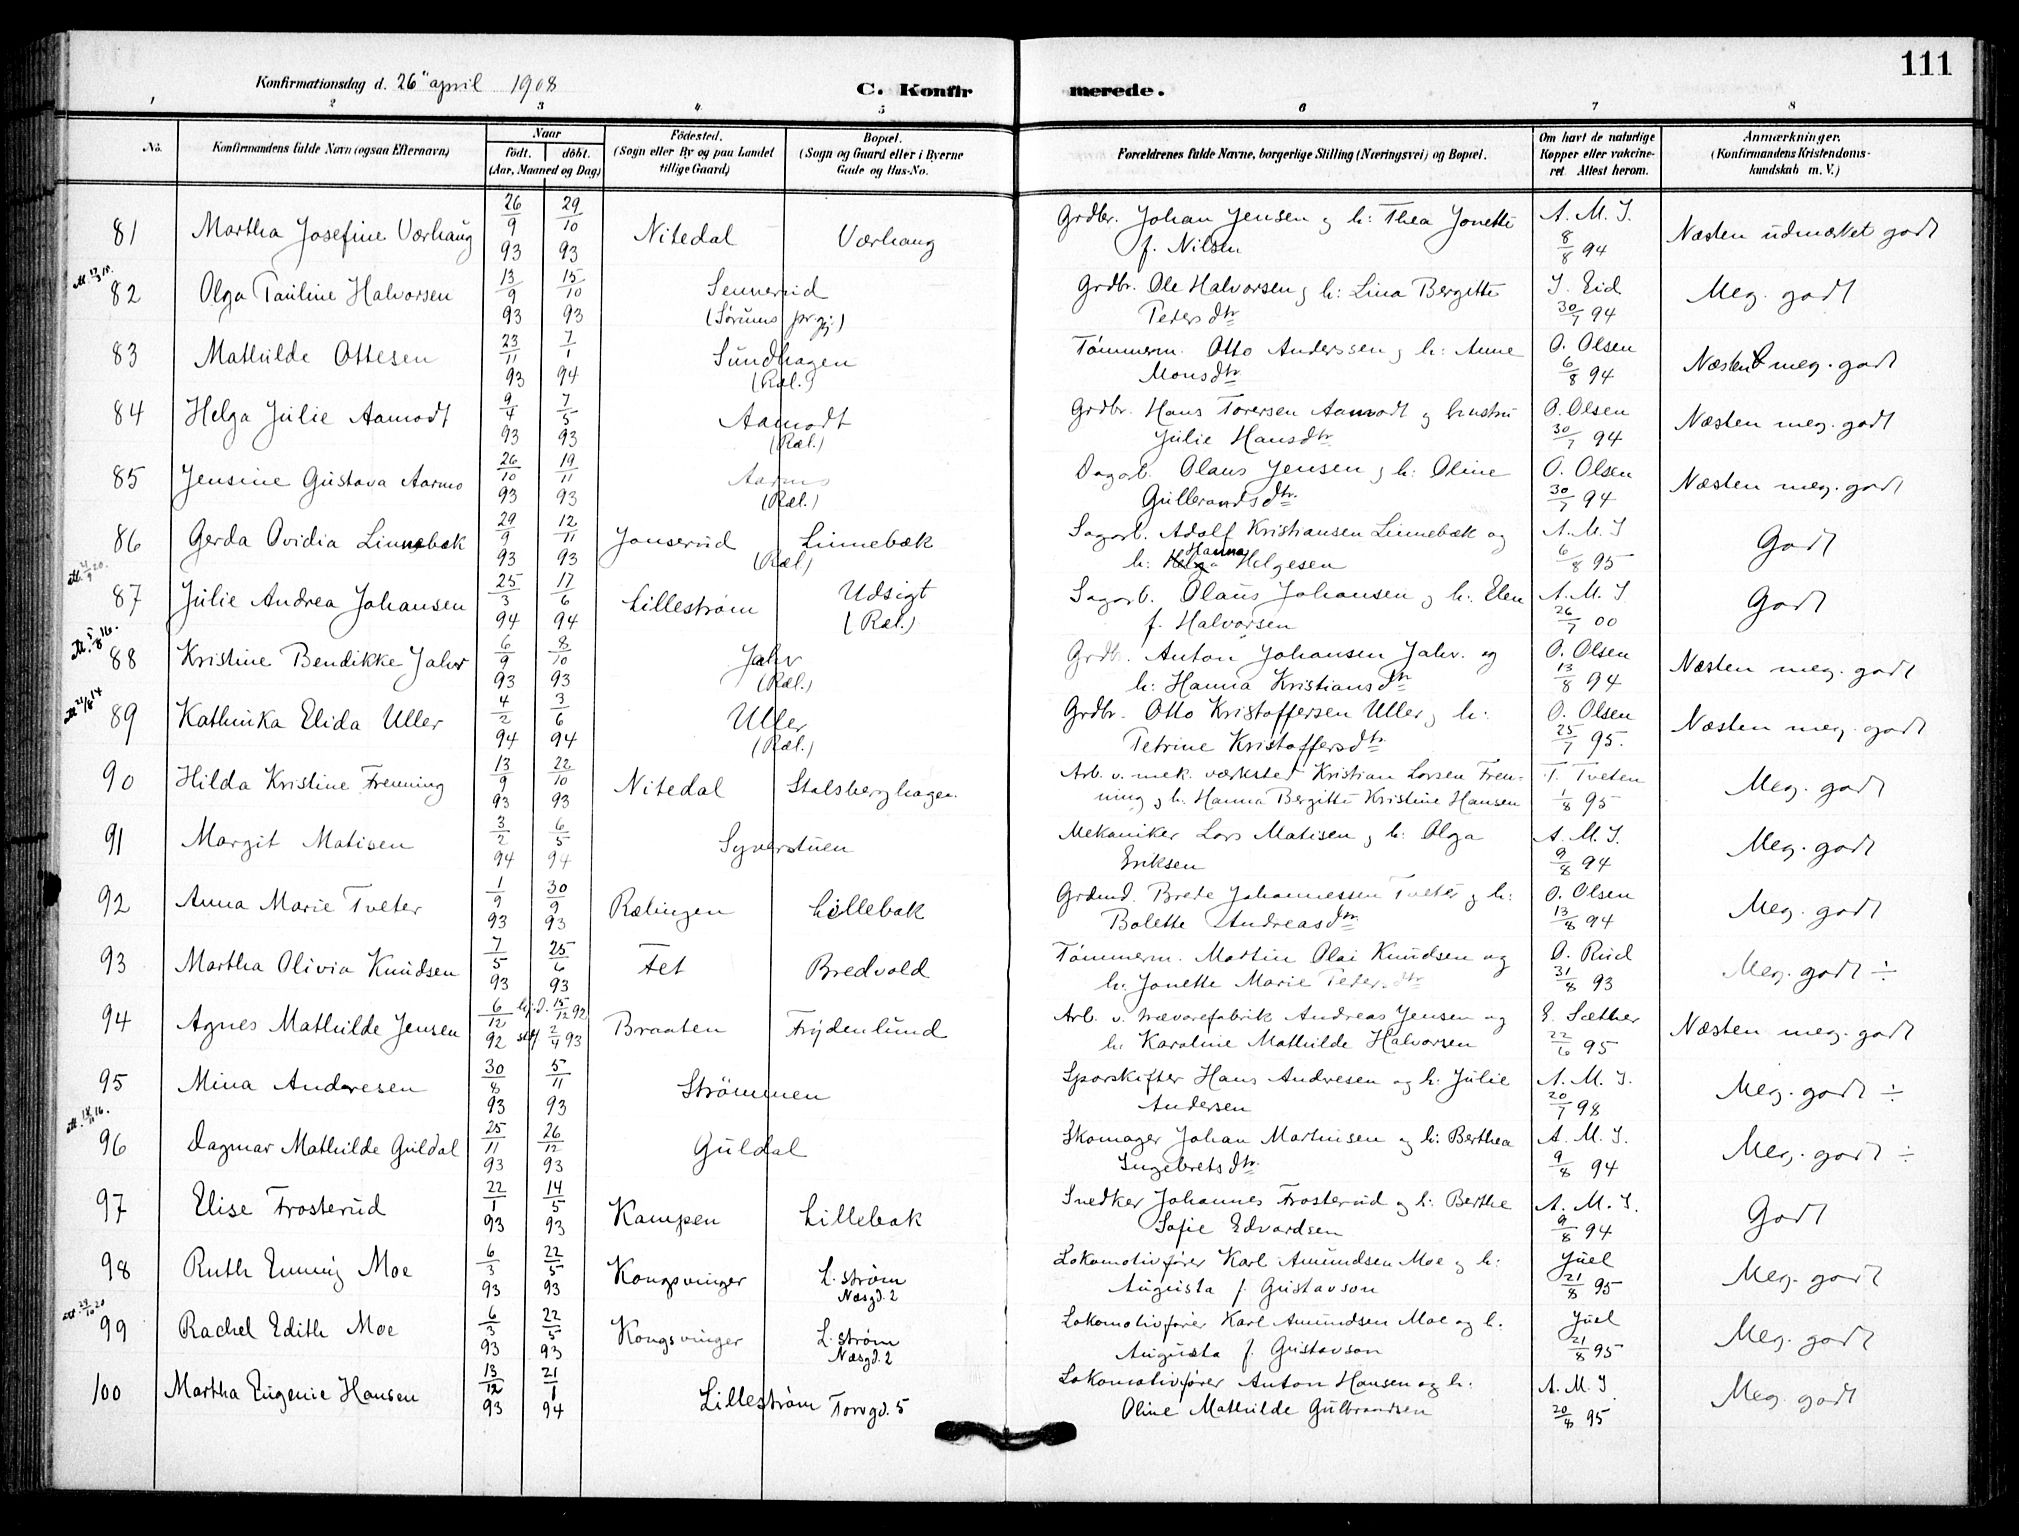 111
Konfirmationsdag d. 26" april 1908
C. Konfirmerede.
1 2 3 4 5 6 7 8
No. | Konfirmandens fulde Navn (ogsaa Efternavn) | Naar født. døbt. (Aar, Maaned og Dag) | Fødested. (Sogn eller By og paa Landet tillige Gaard) | Bopæl. (Sogn og Gaard eller i Byerne Gade og Hus-No. | Forældrenes fulde Navne, borgerlige Stilling (Næringsvei) og Bopæl. | Om havt de naturlige Kopper eller vakcineret. Attest herom. | Anmærkninger. (Konfirmandens Kristendomskundskab m. V.)
81 Martha Josefine Værhaug 26/9 93 29/10 93 Nitedal Værhaug Grdbr. Johan Jensen og h: Thea Jonette f. Nilsen A. M. J. 8/8 94 Næsten udmærket godt
82 Olga Pauline Halvorsen 13/9 93 15/10 93 Sennerud (Sørums prgj.) Grdbr. Ole Halvorsen og h: Lina Bergitte Pedersdtr J. Eid 30/7 94 Meg. godt
83 Mathilde Ottesen 23/11 93 7/1 94 Sundhagen (Ræl.) Tømmerm. Otto Anderssen og h: Anne Monsdtr O. Olsen 6/8 94 Næsten meg. godt
84 Helga Julie Aamodt 9/4 93 7/5 93 Aamodt (Ræl.) Grdbr. Hans Torersen Aamodt og hustru Julie Hansdtr O. Olsen 30/7 94 Næsten meg. godt
85 Jensine Gustava Aarnes 26/10 93 19/11 93 Aarnes (Ræl.) Dagarb. Olaus Jensen og h: Oline Gulbrandsdtr. O. Olsen 30/7 94 Næsten meg. godt
86 Gerda Ovidia Linnebæk 29/9 93 12/11 93 Jonserud Linnebæk (Ræl) Sagarb. Adolf Kristiansen Linnebæk og h: Hanna Helgesen A. M. J 6/8 95 Godt
87 Julie Andrea Johansen 25/3 94 17/6 94 Lillestrøm Udsigt (Ræl.) Sagarb. Olaus Johansen og h. Elen f. Halvorsen A. M. J. 26/7 00 Godt
88 Kristine Bendikke Jahr 6/9 93 8/10 93 Jahr (Ræl.) Grdb. Anton Johansen Jahr. og h: Hanna Kristiansdtr O. Olsen 13/8 94 Næsten meg. godt
89 Kathinka Elida Uller 4/2 94 3/6 94 Uller (Ræl.) Grdbr. Otto Kristoffersen Uller og h: Petrine Kristoffersdtr O. Olsen 25/7 95. Næsten meg. godt
90 Hilda Kristine Frenning 13/9 93 22/10 93 Nitedal Stalsberghagen. Arb. v. mek. værksted Kristian Larsen Frenning og h. Hanna Bergitte Kristine Hansen T. Tveten 1/8 95 Meg. godt
91 Margit Matisen 3/2 94 6/5 94 Syverstuen Mekaniker Lars Matisen og h: Olga Eriksen A. M. J. 9/8 94 Meg. godt
92 Anna Marie Tveter 1/9 93 30/9 93 Rælingen Lillebak Grdmd. Brede Johannessen Tveter og h: Bolette Andreasdtr O. Olsen 13/8 94 Meg. godt
93 Martha Olivia Knudsen 7/5 93 25/6 93 Fet Bredvold Tømmerm. Martin Olai Knudsen og h. Jonette Marie Peder.dtr O. Ruud 31/8 93 Meg. godt ÷
94 Agnes Mathilde Jensen 6/12 92 hj.d. 15/12 92 st. 2/4 93 Braaten Frydenlund Arb. v. trævarefabrik Andreas Jensen og h. Karoline Mathilde Halvorsen E. Sæther 22/6 95 Næsten meg. godt
95 Mina Andresen 30/8 93 5/11 93 Strømmen Sporskifter Hans Andresen og h. Julie Andersen A. M. J. 20/7 98 Meg. godt ÷
96 Dagmar Mathilde Guldal 25/11 93 26/12 93 Guldal Skomager Johan Martinsen og h: Berthea Ingebretsdtr. A. M. J. 9/8 94 Meg. godt ÷
97 Elise Frosterud 22/1 93 14/5 93 Kampen Lillebak Snedker Johannes Frosterud og h: Berthe Sofie Edvardsen A. M. J. 9/8 94 Godt
98 Ruth Emmy Moe 6/3 93 22/5 93 Kongsvinger L.strøm Næsgd. 2 Lokomotivfører Karl Amundsen Moe og h: Augusta f. Gustavson Juel 21/8 95 Meg. godt
99 Rachel Edith Moe 6/3 93 22/5 93 Kongsvinger L.strøm Næsgd. 2 Lokomotivfører Karl Amundsen Moe og h. Augusta f. Gustavson Juel 21/8 95 Meg. godt
100 Martha Eugenie Hansen 13/12 93 21/1 94 Lillestrøm Torvgd. 5 Lokomotivfører Anton Hansen og h. Oline Mathilde Gulbrandsen A. M. J. 20/8 95 Meg. godt